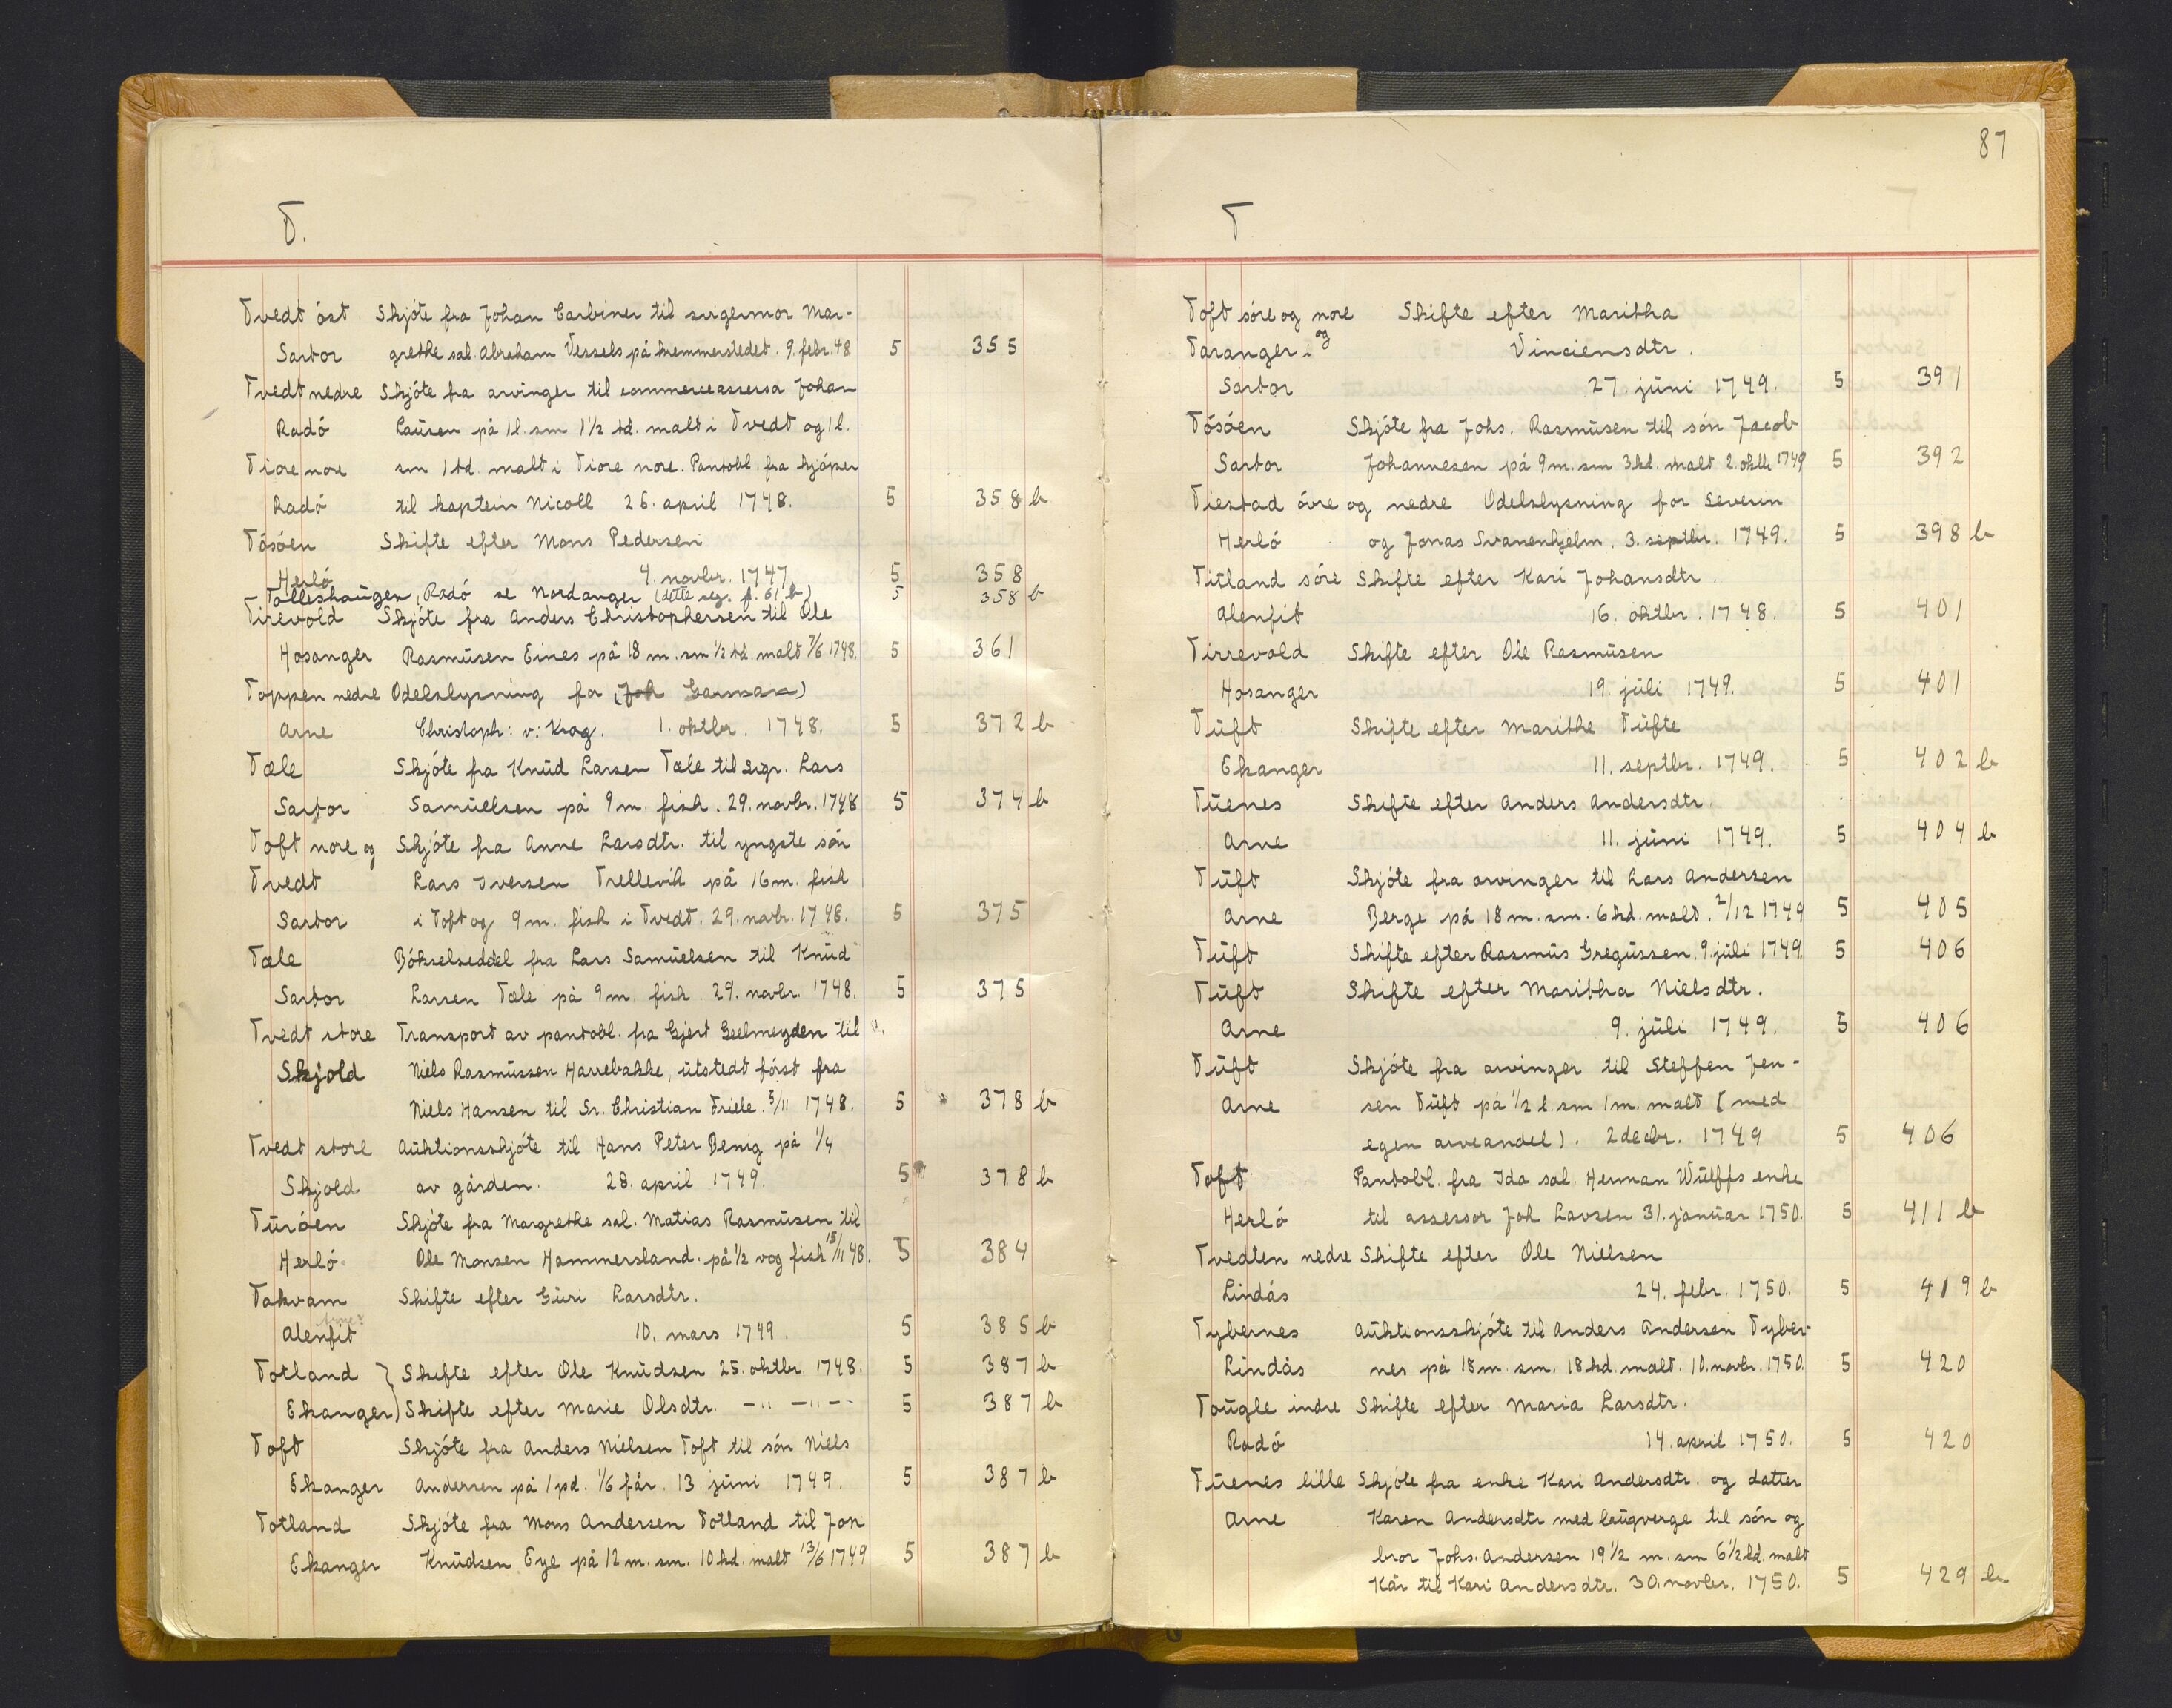 T.
Tvedt óst Skjóte fra Johan Carbiner til svigermor Mar-
Sartor grethe sal. Abraham Vessels på hemmerstedet. 9. febr. 48 5 355
Tvedt nedre Skjóte fra arvinger til commerceassessor Johan
Radó Laüsen på 1 l. sm 1½ td. malt i Tvedt og 1 l.
Tiore nore sm 1 td. malt i Tiore nore. Pantobl. fra kjóper
Radó til kaptein Nicoll 26. april 1748. 5 358 b
Tósóen Skifte efter Mons Pedersen
Herló 4. novbr. 1747 5 358
Tolleshaugen, Radó se Nordanger (dette reg. f. 61 b) 5 358 b
Tirevold Skjóte fra Anders Christophersen til Ole
Hosanger Rasmüsen Eines på 18 m. sm ½ td. malt 7/6 1748. 5 361
Toppen nedre Odelslysning for (Joh Garman)
Arne Christoph: v: Krog. 1. oktbr. 1748. 5 372 b
Tæle Skjóte fra Knüd Larsen Tæle til Sigr. Lars
Sartor Samüelsen på 9 m. fisk. 29. novbr. 1748 5 374 b
Toft nore og Skjóte fra Anne Larsdtr. til yngste són
Tvedt Lars Iversen Trellevik på 16 m. fisk
Sartor i Toft og 9 m. fisk i Tvedt. 29. novbr. 1748. 5 375
Tæle Bókselseddel fra Lars Samüelsen til Knüd
Sartor Larsen Tæle på 9 m. fisk. 29. novbr. 1748. 5 375
Tvedt store Transport av pantobl. fra Gjert Geelmeyden til
Skjold Niels Rasmüssen Harrebakke, ütstedt fórst fra
Niels Hansen til Sr. Christian Friele. 5/11 1748. 5 378 b
Tvedt store Aüktionsskjóte til Hans Peter Benig på ¼
Skjold av gården. 28. april 1749. 5 378 b
Türóen Skjóte fra Margrethe sal. Matias Rasmüsen til
Herló Ole Monsen Hammersland. på ½ vog fisk 15/11 48. 5 384
Takvam Skifte efter Güri Larsdtr.
Alenfit 10. mars 1749. 5 385 b
Totland } Skifte efter Ole Knüdsen 25. oktbr. 1748. 5 387 b
Ekanger } Skifte efter Marie Olsdtr. -"- -"- 5 387 b
Toft Skjóte fra Anders Nielsen Toft til són Niels
Ekanger Andersen på 1 pd. 1/6 får. 13. jüni 1749. 5 387 b
Totland Skjóte fra Mons Andersen Totland til Jon
Ekanger Knüdsen Eye på 12 m. sm. 10 kd. malt 13/6 1749 5 387 b
87
T
Toft sóre og nore Skifte efter Maritha
Taranger i og Vinciensdtr.
Sartor 27. jüni 1749. 5 391
Tósóen Skjóte fra Johs. Rasmüsen til són Jacob
Sartor Johannesen på 9 m. sm 3 kd. malt 2. oktb. 1749 5 392
Tiestad óvre og nedre Odelslysning for Severin
Herló og Jonas Svanenhjelm. 3. septbr. 1749. 5 398 b
Titland sóre Skifte efter Kari Johansdtr.
Alenfit 16. oktbr. 1748. 5 401
Tirrevold Skifte efter Ole Rasmüsen
Hosanger 19. jüli 1749. 5 401
Tüft Skifte efter Marithe Tüfte
Ekanger 11. septbr. 1749. 5 402 b
Tüenes Skifte efter Anders Andersdtr.
Arne 11. jüni 1749. 5 404 b
Tüft Skjóte fra arvinger til Lars Andersen
Arne Berge på 18 m. sm. 6 kd. malt. 2/12 1749 5 405
Tüft Skifte efter Rasmüs Gregüssen. 9. jüli 1749. 5 406
Tüft Skifte efter Maritha Nielsdtr.
Arne 9. jüli 1749. 5 406
Tüft Skjóte fra arvinger til Steffen Jen-
Arne sen Tüft på ½ l. sm 1 m. malt (med
egen arveandel). 2 decbr. 1749 5 406
Toft Pantobl. fra Ida sal. Herman Wülffs enke
Herló til assessor Joh Lavsen 31. janüar 1750. 5 411 b
Tvedten nedre Skifte efter Ole Nielsen
Lindås 24. febr. 1750. 5 419 b
Tybernes Aüktionsskjóte til Anders Andersen Tyber-
Lindås nes på 18 m. sm. 18 kd. malt. 10. novbr. 1750. 5 420
Toügle indre Skifte efter Maria Larsdtr.
Radó 14. april 1750. 5 420
Tüenes lille Skjóte fra enke Kari Andersdtr. og datter
Arne Karen Andersdtr med laügverge til són og
bror Johs. Andersen 19½ m. sm 6½ kd. malt
Kår til Kari Andersdtr. 30. novbr. 1750. 5 429 b